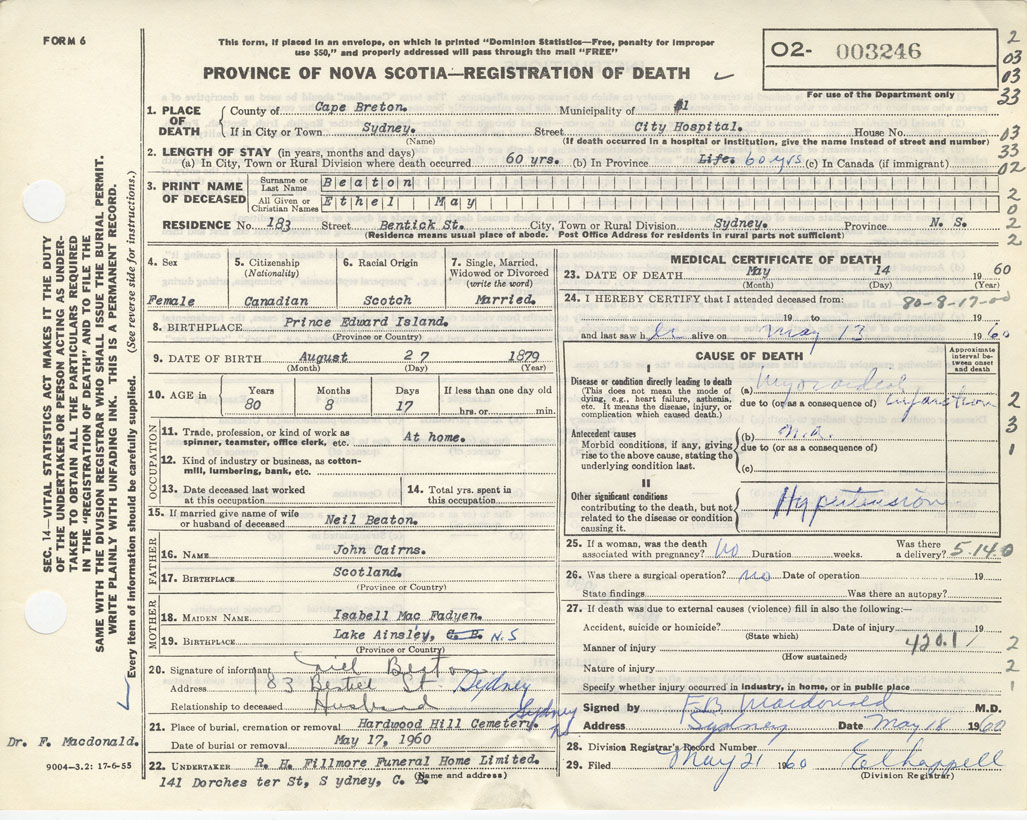 FORM 6
This form, if placed in an envelope, on which is printed "Dominion Statistics—Free, penalty for improper
use $50," and properly addressed will pass through the mail "FREE"
PROVINCE OF NOVA SCOTIA—REGISTRATION OF DEATH
02- 003246
For use of the Department only
2
03
03
33
03
33
02
2
0
2
2
1. PLACE OF DEATH
County of Cape Breton. Municipality of #1
If in City or Town Sydney. Street City Hospital. House No.
(Name) (If death occurred in a hospital or institution, give the name instead of street and number)
2. LENGTH OF STAY (in years, months and days)
(a) In City, Town or Rural Division where death occurred 60 yrs. (b) In Province Life. 60 yrs (c) In Canada (if immigrant)
3. PRINT NAME OF DECEASED
Surname or Last Name Beaton
All Given or Christian Names Ethel May
RESIDENCE No. 183 Street Bentick St. City, Town or Rural Division Sydney. Province N. S.
(Residence means usual place of abode. Post Office Address for residents in rural parts not sufficient)
4. Sex
Female
5. Citizenship
(Nationality)
Canadian
6. Racial Origin
Scotch
7. Single, Married,
Widowed or Divorced
(write the word)
Married.
8. BIRTHPLACE Prince Edward Island.
(Province or Country)
9. DATE OF BIRTH August 27 1879
(Month) (Day) (Year)
10. AGE in Years Months Days If less than one day old
80 8 17 hrs. or min.
OCCUPATION
11. Trade, profession, or kind of work as
spinner, teamster, office clerk, etc. At home.
12. Kind of industry or business, as cotton-
mill, lumbering, bank, etc.
13. Date deceased last worked
at this occupation
14. Total yrs. spent in
this occupation
15. If married give name of wife
or husband of deceased Neil Beaton.
FATHER
16. NAME John Cairns.
17. BIRTHPLACE Scotland.
(Province or Country)
MOTHER
18. MAIDEN NAME Isabell Mac Fadyen.
19. BIRTHPLACE Lake Ainsley, C. B. N.S
(Province or Country)
20. Signature of informant Neil Beaton
Address 183 Bentick St Sydney
Relationship to deceased Husband
21. Place of burial, cremation or removal Hardwood Hill Cemetery. Sydney NS
Date of burial or removal May 17, 1960
22. UNDERTAKER R. H. Fillmore Funeral Home Limited.
(Name and address)
141 Dorches ter St, S ydney, C. B.
MEDICAL CERTIFICATE OF DEATH
23. DATE OF DEATH May 14 1960
(Month) (Day) (Year)
24. I HEREBY CERTIFY that I attended deceased from: 80-8-17-00
19 to 19
and last saw h er alive on May 13 1960
CAUSE OF DEATH
Approximate interval between onset and death
I
Disease or condition directly leading to death
(This does not mean the mode of
dying, e.g., heart failure, asthenia,
etc. It means the disease, injury, or
complication which caused death.)
(a) Myocardial
due to (or as a consequence of) infarction
2
3
1
Antecedent causes
Morbid conditions, if any, giving
rise to the above cause, stating the
underlying condition last.
(b)
due to (or as a consequence of)
(c)
II
Other significant conditions
contributing to the death, but not
related to the disease or condition
causing it.
Hypertension
25. If a woman, was the death
associated with pregnancy? No Duration weeks. Was there
a delivery? 5.14.0
26. Was there a surgical operation? no Date of operation 19
State findings Was there an autopsy?
27. If death was due to external causes (violence) fill in also the following:—
Accident, suicide or homicide? Date of injury 19
(State which)
Manner of injury 420.1 2
(How sustained)
Nature of injury 2
Specify whether injury occurred in industry, in home, or in public place 1
Signed by F B Macdonald M.D.
Address Sydney Date May 18 1960
28. Division Registrar's Record Number
29. Filed May 21 1960
(Division Registrar)
SEC. 14—VITAL STATISTICS ACT MAKES IT THE DUTY
OF THE UNDERTAKER OR PERSON ACTING AS UNDER-
TAKER TO OBTAIN ALL THE PARTICULARS REQUIRED
IN THE "REGISTRATION OF DEATH" AND TO FILE THE
SAME WITH THE DIVISION REGISTRAR WHO SHALL ISSUE THE BURIAL PERMIT.
WRITE PLAINLY WITH UNFADING INK. THIS IS A PERMANENT RECORD.
Every item of information should be carefully supplied. (See reverse side for instructions.)
Dr. F. Macdonald.
9004-3.2: 17-6-55